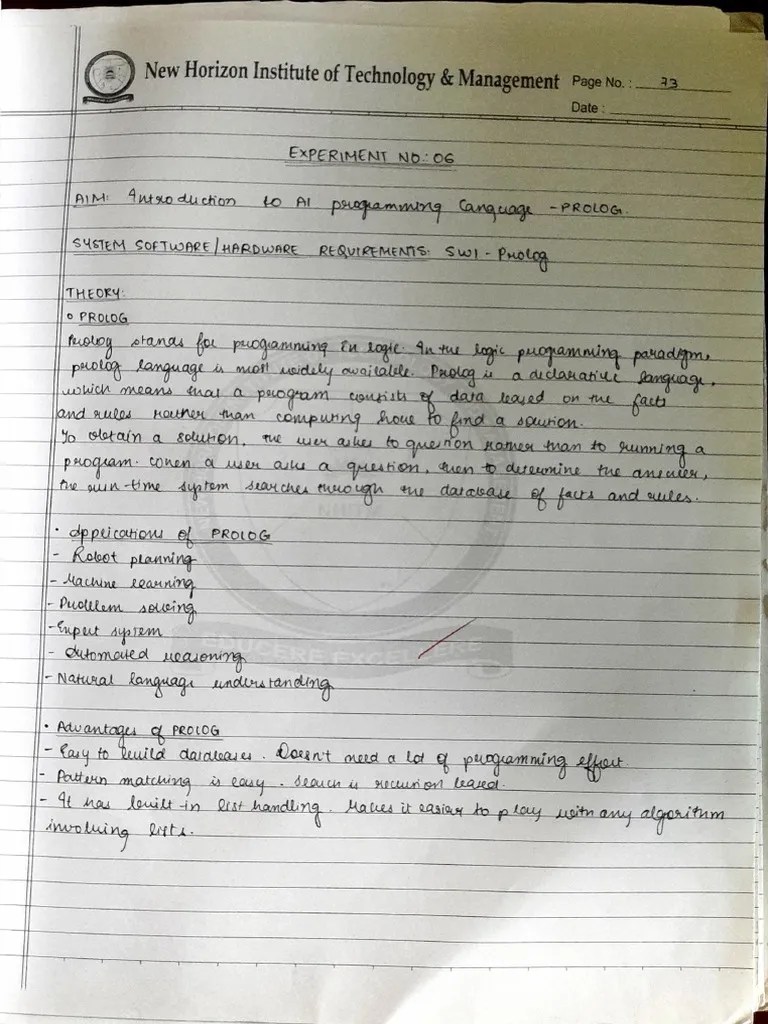 New Horizon Institute of Technology & Management
Page No. : 73
Date :
EXPERIMENT NO.: 06
AIM: Introduction to AI programming language - PROLOG.
SYSTEM SOFTWARE/HARDWARE REQUIREMENTS: SWI - Prolog
THEORY:
o PROLOG
Prolog stands for programming in logic. In the logic programming paradigm,
prolog language is most widely available. Prolog is a declarative language,
which means that a program consists of data based on the facts
and rules rather than computing how to find a solution.
To obtain a solution, the user asks to question rather than to running a
program. When a user asks a question, then to determine the answer,
the run-time system searches through the database of facts and rules.
• Applications of PROLOG
- Robot planning
- Machine learning
- Problem solving
- Expert system
- Automated reasoning
EDUCERE EXCELLERE
- Natural language understanding
• Advantages of PROLOG
- Easy to build databases. Doesn't need a lot of programming effort.
- Pattern matching is easy. Search is recursion based.
- It has built in list handling. Makes it easier to play with any algorithm
involving lists.